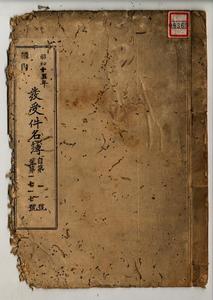 昭和十五年
館内
發受件名簿
自第一號
至第一七一七號